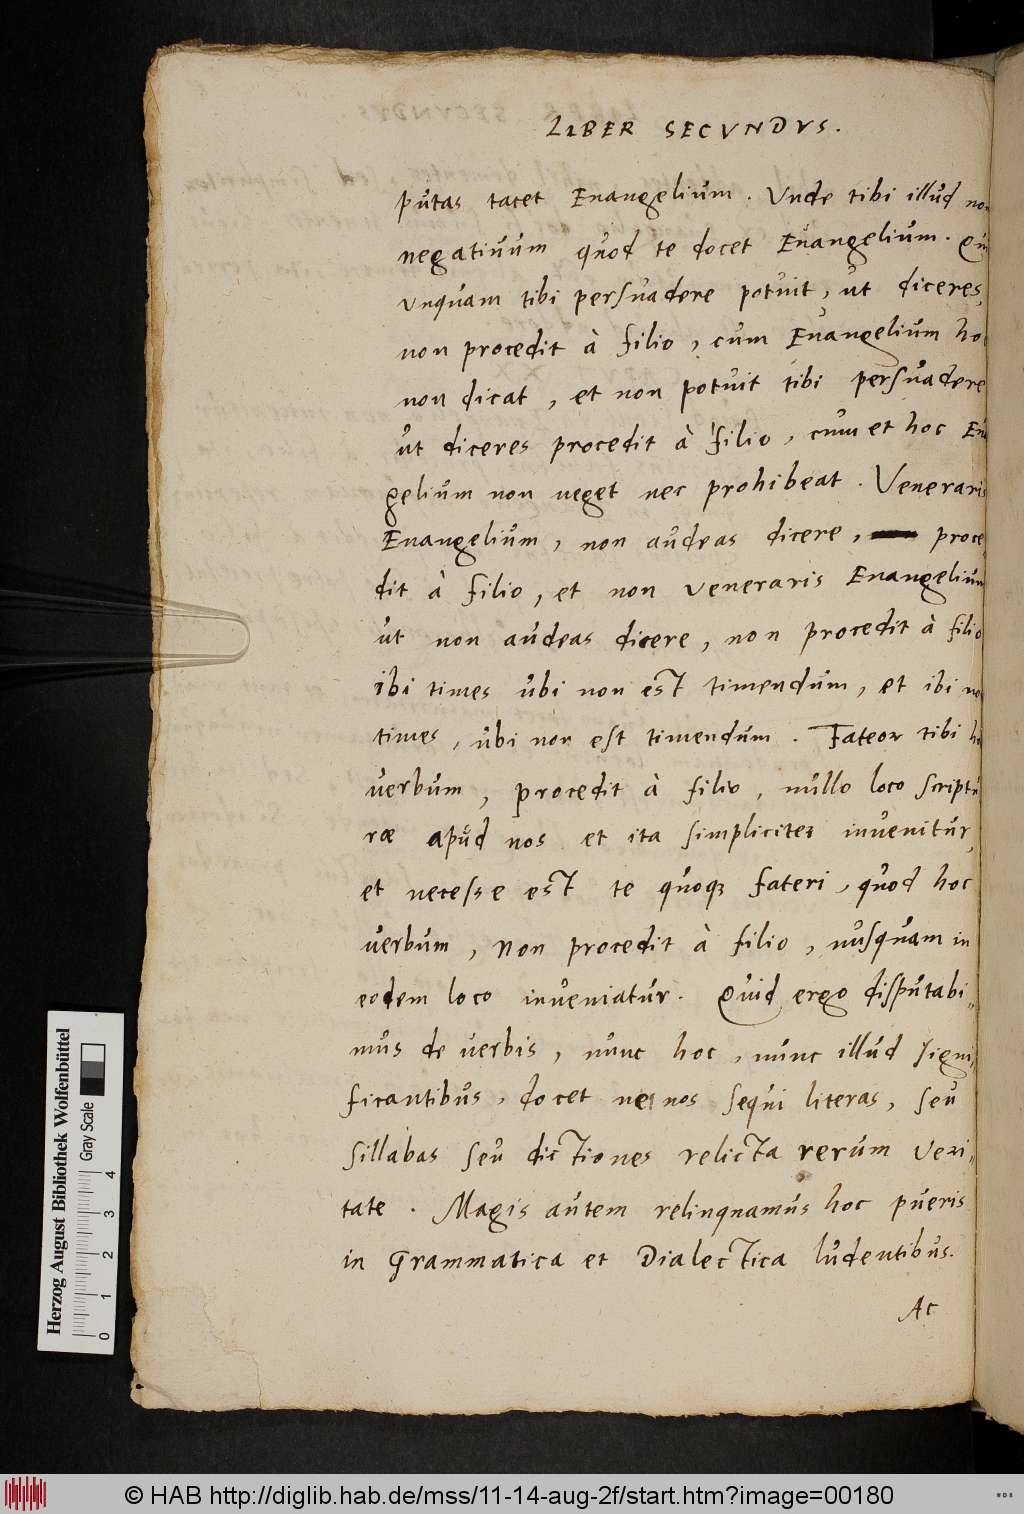 LIBER SECVNDVS.
putas tacet Euangelium. Vnde tibi illud non
negatiuum quod te docet Euangelium. Qui
vnquam tibi persuadere potuit, ut diceres,
non procedit à filio, cum Euangelium hoc
non dicat, et non potuit tibi persuadere
ut diceres procedit à filio, cum et hoc Eua
gelium non neget nec prohibeat. Veneraris
Euangelium, non audeas dicere, proce
dit à filio, et non veneraris Euangelium
ut non audeas dicere, non procedit à filio
ibi times ubi non est timendum, et ibi non
times, ubi non est timendum. Fateor tibi hoc
verbum, procedit à filio, nullo loco scriptu
ræ apud nos et ita simpliciter invenitur,
et necesse est te quoqz fateri, quod hoc
verbum, non procedit à filio, nusquam in
eodem loco inveniatur. Quid ergo disputabi„
mus de verbis, nunc hoc, nunc illud signi„
ficantibus, docet nos sequi literas, seu
sillabas seu dictiones relicta rerum veri„
tate. Magis autem relinquamus hoc pueris
in Grammatica et Dialectica ludentibus.
Ac
Herzog August Bibliothek Wolfenbüttel
Gray Scale
0 1 2 3 4
© HAB http://diglib.hab.de/mss/11-14-aug-2f/start.htm?image=00180